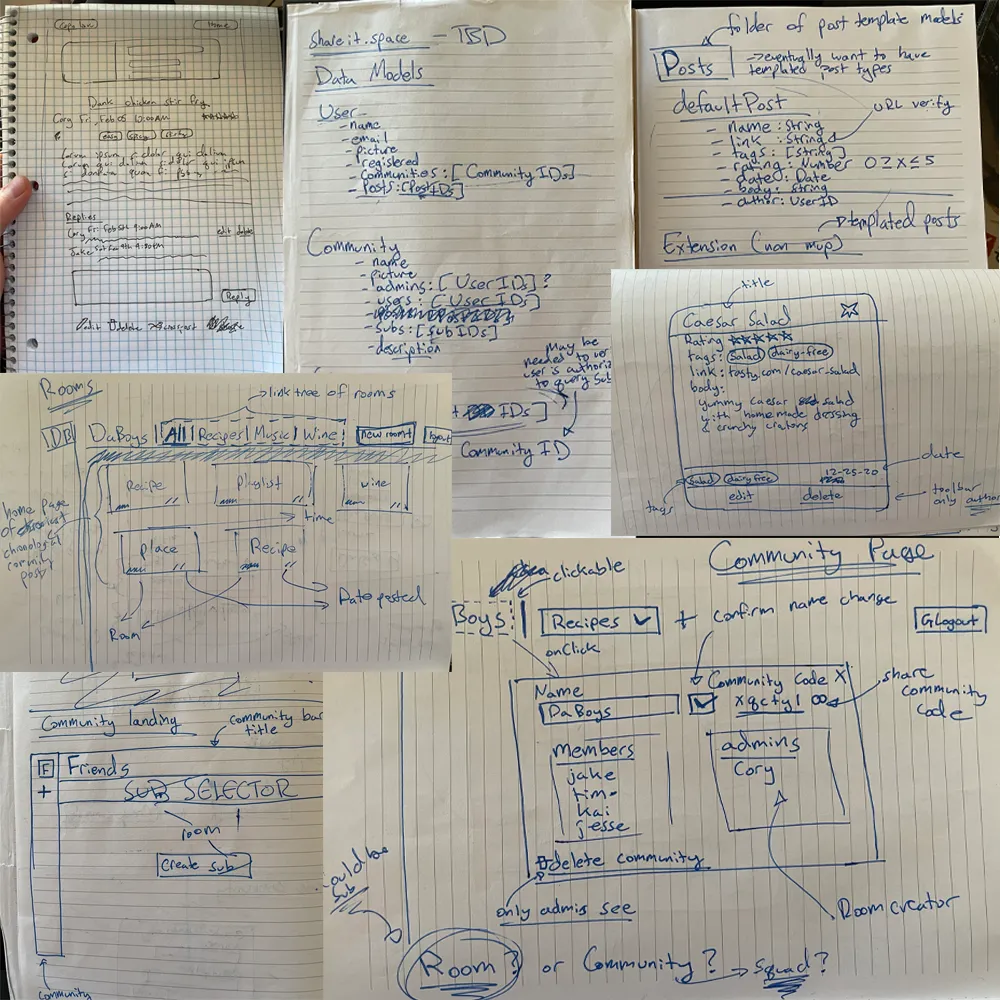 Home
Dank chicken stir fry
Cory Fri, Feb 05 10:00AM
easy
spicy
Replies
Cory Fri Feb 5th 9:00AM
edit delete
Reply
Share it.space - TBD
Data Models
User
- name
- email
- picture
- registered
- communities: [Community IDs]
- Posts: [Post IDs]
Community
- name
- picture
- admins: [User IDs] ?
- users: [User IDs]
- subs: [sub IDs]
- description
May be
needed to ver
user is authoriz
to query sub
IDs]
Community ID
folder of post template models
Posts
→ eventually want to have
templated post types
defaultPost
URL verify
- name: String
- link: String
- tags: [String]
- rating: Number 0 ≥ x ≤ 5
- dated: Date
- body: string
- author: UserID
templated posts
Extension (non mvp)
title
Caesar Salad
Rating ☆☆☆☆☆
tags: salad dairy-free
link: tasty.com/caesar-salad
body:
yummy caesar salad
with homemade dressing
& crunchy crutons
date
salad dairy free
12-25-20
tags
edit delete
toolbar
only author
Rooms
link tree of rooms
DB
DaBoys | All | Recipes | Music | Wine
new room+
logout
Recipe
Playlist
wine
home page
of
chronological
community
posts
time
Place
Recipe
Date posted
Room
Community landing
community bar
title
F
Friends
+
SUB SELECTOR
room
Create sub
Community
Community Page
clickable
Boys
Recipes ✓
+
confirm name change
Logout
onClick
Name
Community Code X
DaBoys
xqctyl
share
community
code
Members
jake
tim
kai
jesse
admins
Cory
delete community
only admis see
Room creator
ould be
sub
Room? or Community? → Squad?